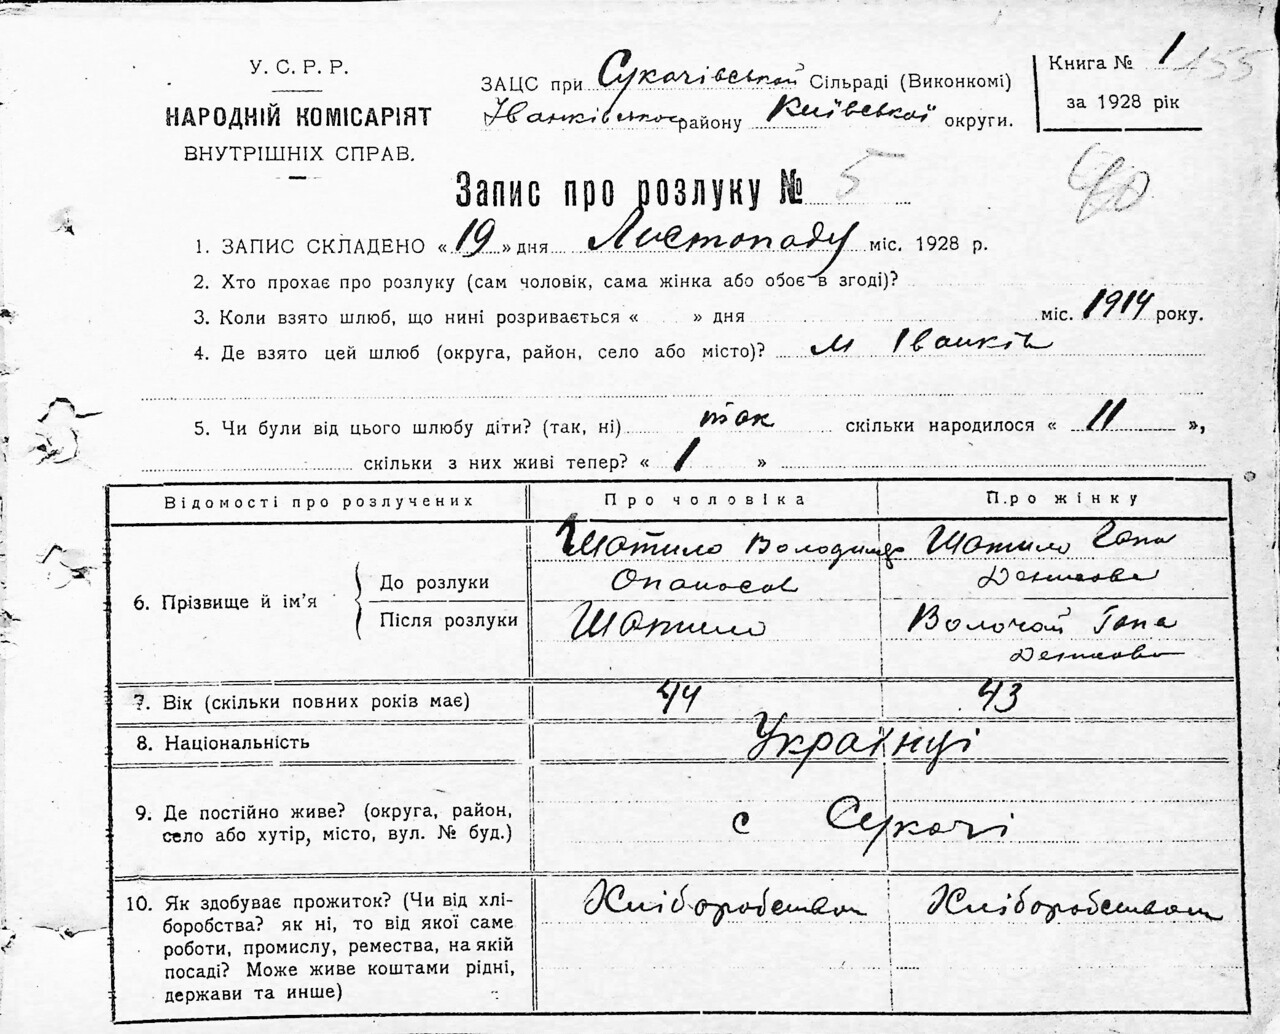 У. С. Р. Р.
НАРОДНІЙ КОМІСАРІЯТ
ВНУТРІШНІХ СПРАВ.
ЗАЦС при Сукачівській Сільраді (Виконкомі)
Іванківського району Київської округи.
Книга № 1
155
за 1928 рік
Запис про розлуку № 5
1. ЗАПИС СКЛАДЕНО « 19 » дня Листопаду міс. 1928 р.
2. Хто прохає про розлуку (сам чоловік, сама жінка або обоє в згоді)?
3. Коли взято шлюб, що нині розривається « » дня міс. 1914 року.
4. Де взято цей шлюб (округа, район, село або місто)? м Іванків
5. Чи були від цього шлюбу діти? (так, ні) так скільки народилося « 11 »,
скільки з них живі тепер? « 1 »
Відомості про розлучених Про чоловіка Про жінку
6. Прізвище й ім'я
До розлуки Шатило Володимир Опанасов Шатило Гапа Денисова
Після розлуки Шатило Волочай Гапа Денисова
7. Вік (скільки повних років має) 44 43
8. Національність Українці
9. Де постійно живе? (округа, район,
село або хутір, місто, вул. № буд.) с Сукачі
10. Як здобуває прожиток? (Чи від хлі- Хліборобством Хліборобством
боробства? як ні, то від якої саме
роботи, промислу, ремества, на якій
посаді? Може живе коштами рідні,
держави та инше)